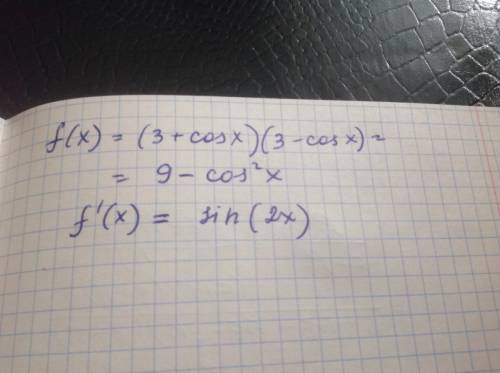 f(x) = (3 + cos x)(3 - cos x) =
= 9 - cos²x
f'(x) = sin(2x)